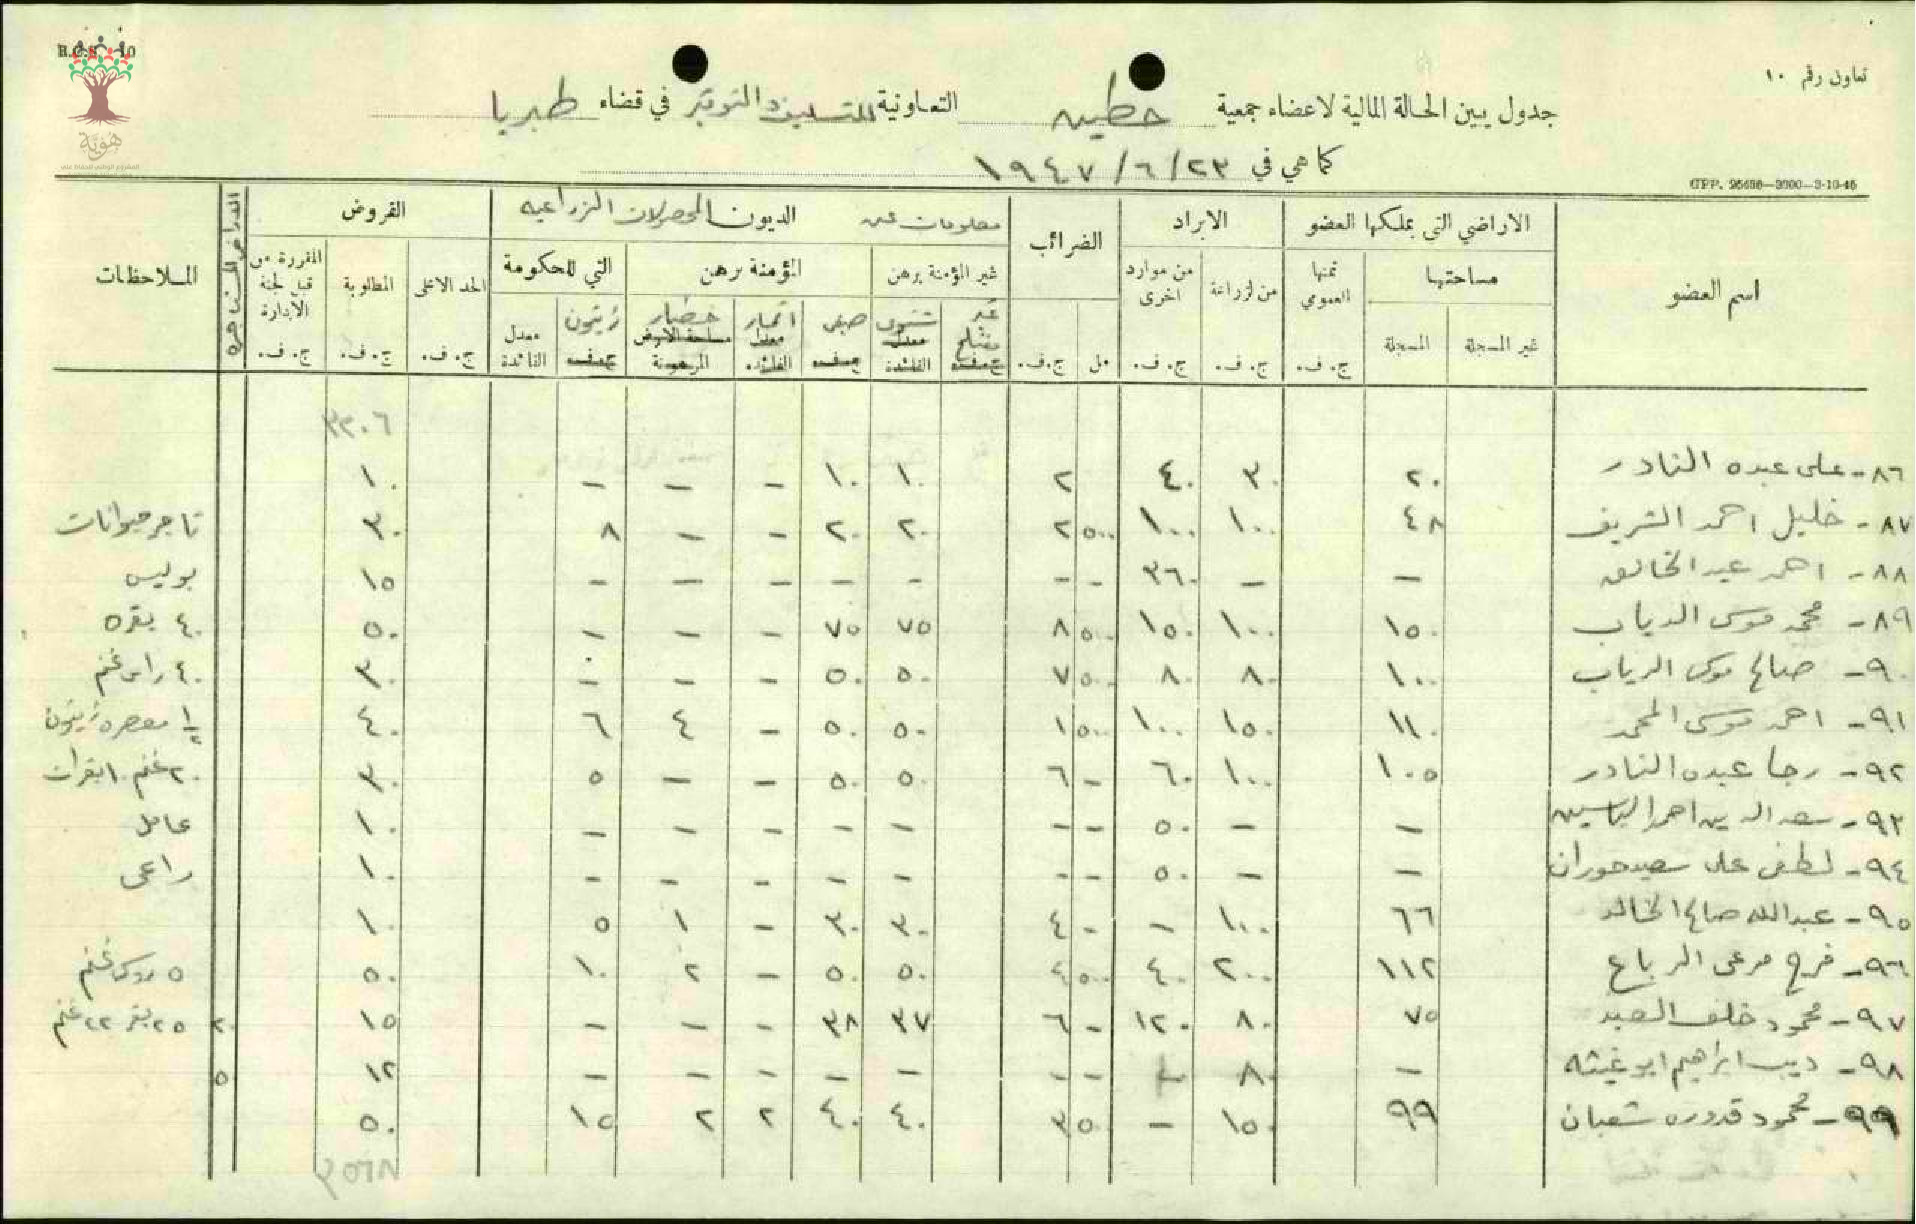 R.C.S. 10
تعاون رقم ١٠
هوية
جدول يبين الحالة المالية لاعضاء جمعية حطين التعاونية للتسليف والتوفير في قضاء طبريا
كما هي في ٢٣/٦/١٩٤٧
GPP. 25636—3000—3-10-45
اسم العضو الاراضي التي يملكها العضو الايراد الضرائب معلومات عن الديون المحصولات الزراعيه القروض الملاحظات
مساحتها ثمنها العمومي من الزراعة من موارد اخرى غير المؤمنة برهن المؤمنة برهن التي للحكومة الحد الاعلى المطلوبة المقررة من قبل لجنة الادارة
غير المسجلة المسجلة ج. ف. ج. ف. ج. ف. مل ج. ف. غير مفتلح ج. ف. شتوي معدل الفائدة صيفي ج. ف. اثمار معدل الفائدة خضار مساحة الارض المرهونة زيتون ج. ف. معدل الفائدة ج. ف. ج. ف. ج. ف.
٣٣٠٦
٨٦- علي عبده النادر ٢٠ ٣٠ ٤٠ ٢ ١٠ ١٠ - - - ١٠
٨٧- خليل احمد الشريف ٤٨ ١٠٠ ١٠٠ ٥٠٠ ٢ ٢٠ ٢٠ - - ٨ ٣٠ تاجر حيوانات
٨٨- احمد عبد الخالق - - ٣٦٠ - - - - - - - ١٥ بوليس
٨٩- محمد موسى الدياب ١٥٠ ١٠٠ ١٥٠ ٥٠٠ ٨ ٧٥ ٧٥ - - - ٥٠ ٤٠ بقره
٩٠- صالح موسى الدياب ١٠٠ ٨٠ ٨٠ ٥٠٠ ٧ ٥٠ ٥٠ - - - ٣٠ ٤٠ راس غنم
٩١- احمد موسى المحمد ١١٠ ١٥٠ ١٠٠ ٥٠٠ ١ ٥٠ ٥٠ - ٤ ٦ ٤٠ ١/٢ معصره زيتون
٩٢- رجا عبده النادر ١٠٥ ١٠٠ ٦٠ - ٦ ٥٠ ٥٠ - - ٥ ٣٠ ٢٠ غنم ١٠ بقرات
٩٣- سعد الدين احمد الياسين - - ٥٠ - - - - - - - ١٠ عامل
٩٤- لطفي علي سعيد حوران - - ٥٠ - - - - - - - ١٠ راعي
٩٥- عبدالله صالح الخالد ٦٦ ١٠٠ - - ٤ ٣٠ ٣٠ - ١ ٥ ١٠
٩٦- فرج مرعي الرباع ١١٢ ٢٠٠ ٤٠ ٥٠٠ ٤ ٥٠ ٥٠ - ٢ ١٠ ٥٠ ٥ غنم
٩٧- محمود خلف العبد ٧٥ ٨٠ ١٢٠ - ٦ ٣٧ ٣٨ - - - ١٥ ٢٠ ٢٥ بقر ٢٢ غنم
٩٨- ديب ابراهيم ابو غيثه - ٨٠ - - - - - - - ١٢ ٥
٩٩- محمود قدوره شعبان ٩٩ ١٥٠ - ٥٠ ٣ ٤٠ ٤٠ ٢ ٢ ١٥ ٥٠